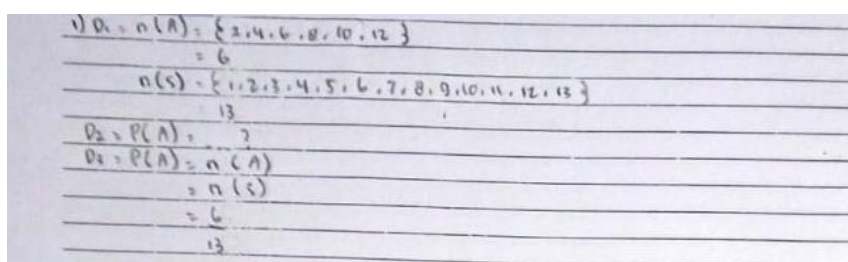 1) D₁ = n(A) = {2,4,6,8,10,12}
= 6
n(S) = {1,2,3,4,5,6,7,8,9,10,11,12,13}
13
D₂ = P(A) = ?
D₃ = P(A) = n(A)
= n(S)
= 6
13